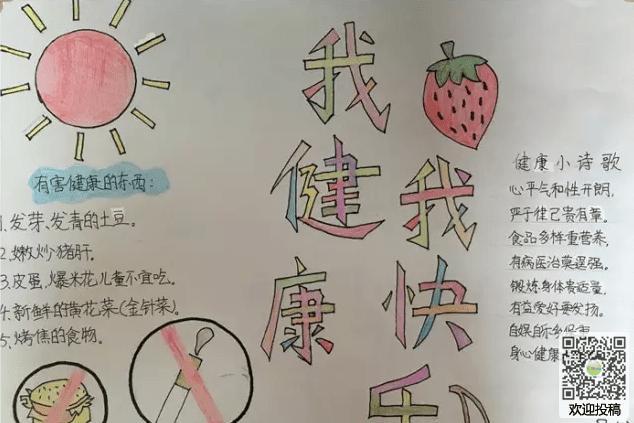 我健康
我快乐
有害健康的东西:
1.发芽、发青的土豆。
2.嫩炒猪肝。
3.皮蛋,爆米花儿童不宜吃。
4.新鲜的黄花菜(金针菜)。
5、烤焦的食物。
健康小诗歌
心平气和性开朗,
严于律己贵有章。
食品多样重营养,
有病医治莫逞强。
锻炼身体贵适量,
有益爱好要发扬。
自娱自乐
身心健康
欢迎投稿